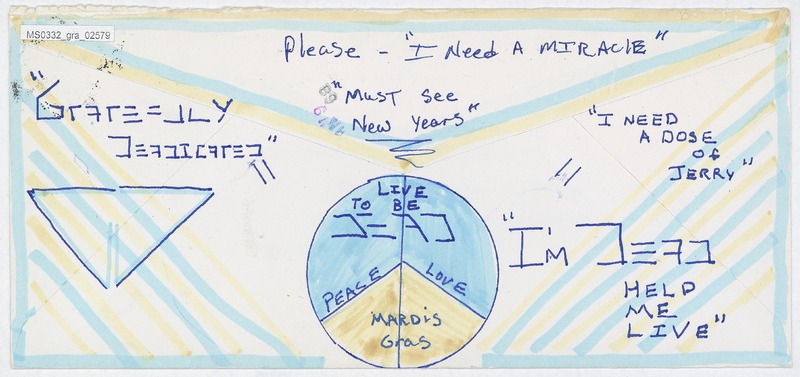 MS0332_gra_02579
Please - "I Need A MIRACLE"
"GRATEFULLY
DEADICATED"
"Must See
New Years"
"I NEED
A DOSE
OF
JERRY"
LIVE
TO BE
DEAD
PEACE
LOVE
MARDIS
Gras
"I'M DEAD
HELP
ME
LIVE"